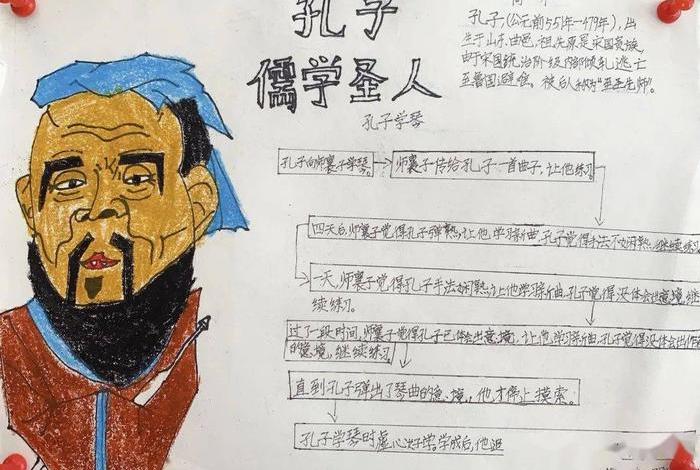 孔子
儒学圣人
孔子(公元前551年—479年),出
生于山东曲邑,祖先原是宋国贵族,
由于宋国统治阶级内部候乱逃亡
至鲁国避
被后人称为“至圣先师”。
孔子学琴
孔子向师襄子学琴。
师襄子传给孔子一首曲子,让他练习
四天后,师襄子觉得孔子弹熟,让他学习新曲,孔子觉得手法不娴熟,继续练习
一天,师襄子觉得孔子手法娴熟,让他学习新曲,孔子觉得没体会出意境,继
续练习。
过了一段时间,师襄子觉得孔子已体会出意境,让他学习新曲,孔子觉得没体会出作
的意境,继续练习
直到孔子弹出了琴曲的意境,他才停止摸索。
孔子学琴时虚心求学。学成后,他